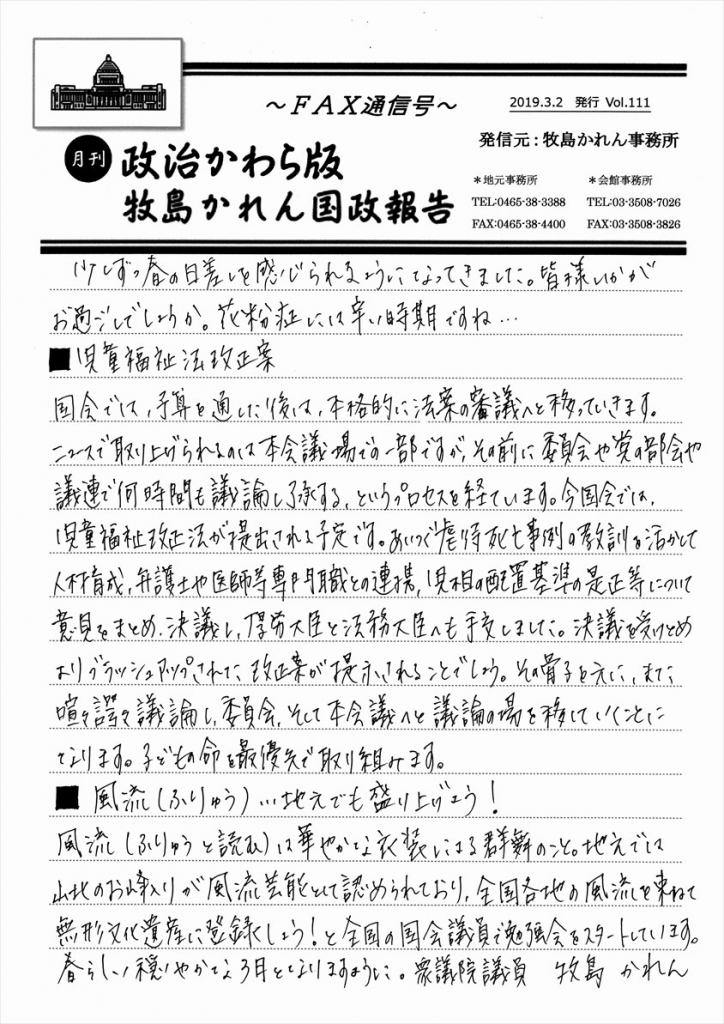 ～ＦＡＸ通信号～
2019.3.2 発行 Vol.111
発信元：牧島かれん事務所
月刊
政治かわら版
牧島かれん国政報告
＊地元事務所
TEL:0465-38-3388
FAX:0465-38-4400
＊会館事務所
TEL:03-3508-7026
FAX:03-3508-3826
少しずつ春の日差しを感じられるようになってきました。皆様いかが
お過ごしでしょうか。花粉症には辛い時期ですね…
■児童福祉法改正案
国会では、予算を通した後は、本格的に法案の審議へと移っていきます。
ニュースで取り上げられるのは本会議場での一部ですが、その前に委員会や党の部会や
議連で何時間も議論し了承する、というプロセスを経ています。今国会では、
児童福祉改正法が提出される予定です。あいつぐ虐待死亡事例の教訓を活かして
人材育成、弁護士や医師等専門職との連携、児相の配置基準の是正等について
意見をまとめ、決議し、厚労大臣と法務大臣へも手交しました。決議を受けとめ
よりブラッシュアップされた改正案が提示されることでしょう。その骨子を元に、また、
喧々諤々議論し、委員会、そして本会議へと議論の場を移していくことに
なります。子どもの命を最優先で取り組みます。
■ 風流(ふりゅう)…地元でも盛り上げよう！
風流(ふりゅうと読む)は華やかな衣装による群舞のこと。地元では
山北のお峰入りが風流芸能として認められており、全国各地の風流を束ねて
無形文化遺産に登録しよう！と全国の国会議員で勉強会をスタートしています。
春らしい穏やかな3月となりますように。衆議院議員 牧島 かれん